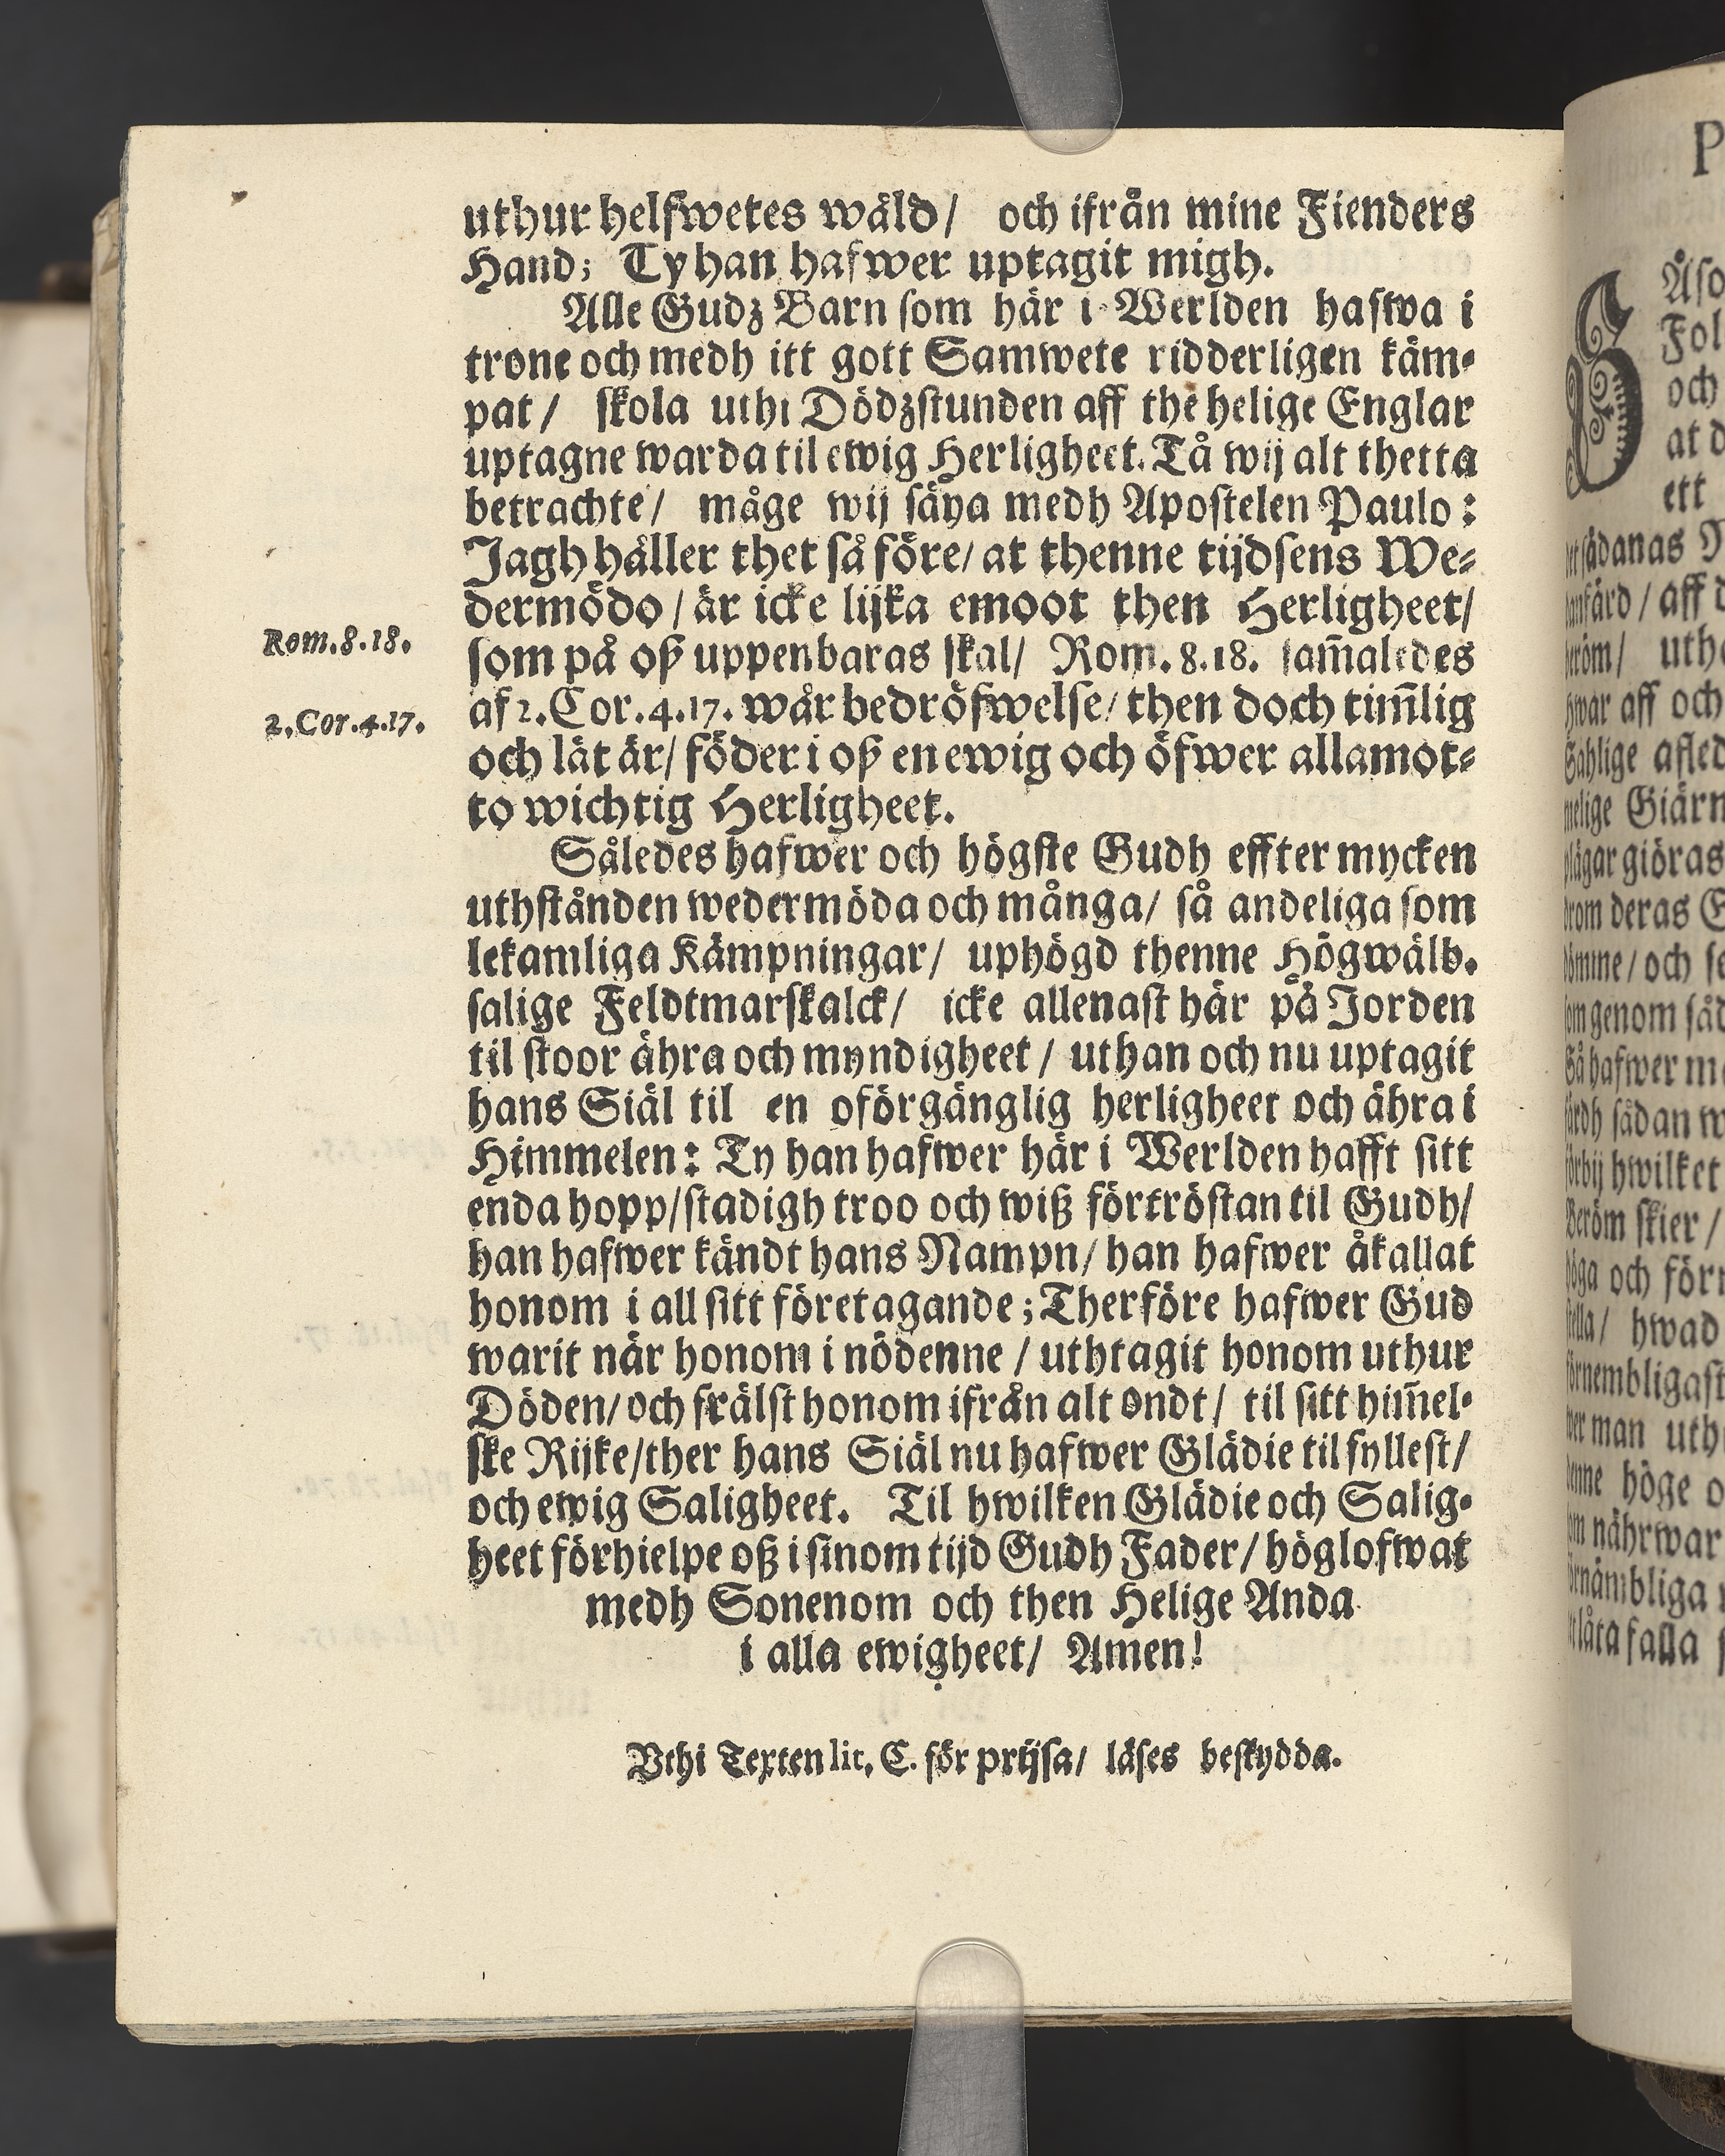 uthur helfwetes wåld/ och ifrån mine Fienders
Hand; Ty han hafwer uptagit migh.
Alle Gudz Barn som här i Werlden hafwa i
trone och medh itt gott Samwete ridderligen käm-
pat/ skola uthi Dödzstunden aff the helige Englar
uptagne warda til ewig Herligheet. Tå wij alt thetta
betrachte/ måge wij säya medh Apostelen Paulo:
Jagh håller thet så före/ at thenne tijdsens We-
dermödo/ är icke lijka emoot then Herligheet/
Rom.8.18.
som på oß uppenbaras skal/ Rom. 8.18. sam̃aledes
2.Cor.4.17.
af 2. Cor. 4.17. wår bedröfwelse/ then doch tim̃lig
och lät är/ föder i oß en ewig och öfwer allamot-
to wichtig Herligheet.
Således hafwer och högste Gudh effter mycken
uthstånden wedermöda och många/ så andeliga som
lekamliga Kämpningar/ uphögd thenne Högwälb.
salige Feldtmarskalck/ icke allenast här på Jorden
til stoor ähra och myndigheet/ uthan och nu uptagit
hans Siäl til en oförgänglig herligheet och ähra i
Himmelen: Ty han hafwer här i Werlden hafft sitt
enda hopp/ stadigh troo och wiß förtröstan til Gudh/
han hafwer kändt hans Nampn/ han hafwer åkallat
honom i all sitt företagande; Therföre hafwer Gud
warit när honom i nödenne/ uthtagit honom uthur
Döden/ och frälst honom ifrån alt ondt/ til sitt him̃el-
ske Rijke/ ther hans Siäl nu hafwer Glädie til fyllest/
och ewig Saligheet. Til hwilken Glädie och Salig-
heet förhielpe oß i sinom tijd Gudh Fader/ höglofwat
medh Sonenom och then Helige Anda
i alla ewigheet/ Amen!
Vthi Texten lit. C. för prijsa/ läses beskydda.